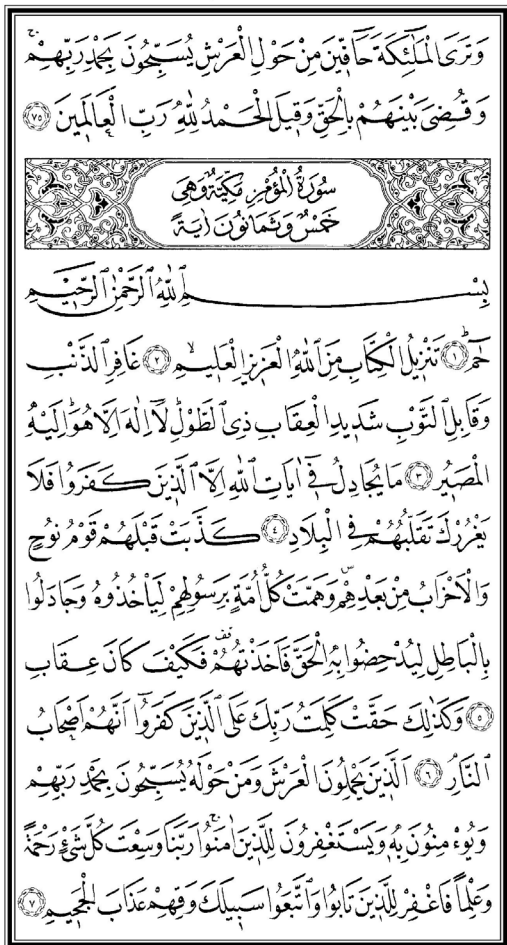 وَتَرَى الْمَلٰٓئِكَةَ حَٓافّٖينَ مِنْ حَوْلِ الْعَرْشِ يُسَبِّحُونَ بِحَمْدِ رَبِّهِمْۚ
وَقُضِيَ بَيْنَهُمْ بِالْحَقِّ وَقٖيلَ الْحَمْدُ لِلّٰهِ رَبِّ الْعَالَمٖينَ ﴿٧٥﴾
سُورَةُ الْمُؤْمِنِ مَكِّيَّةٌ وَهِيَ
خَمْسٌ وَثَمَانُونَ اٰيَةً
بِسْمِ اللّٰهِ الرَّحْمٰنِ الرَّحٖيمِ
حٰمٓۜ ﴿١﴾ تَنْزٖيلُ الْكِتَابِ مِنَ اللّٰهِ الْعَزٖيزِ الْعَلٖيمِۙ ﴿٢﴾ غَافِرِ الذَّنْبِ
وَقَابِلِ التَّوْبِ شَدٖيدِ الْعِقَابِ ذِي الطَّوْلِۜ لَٓا اِلٰهَ اِلَّا هُوَۜ اِلَيْهِ
الْمَصٖيرُ ﴿٣﴾ مَا يُجَادِلُ فٖٓي اٰيَاتِ اللّٰهِ اِلَّا الَّذٖينَ كَفَرُوا فَلَا
يَغْرُرْكَ تَقَلُّبُهُمْ فِي الْبِلَادِ ﴿٤﴾ كَذَّبَتْ قَبْلَهُمْ قَوْمُ نُوحٍ
وَالْاَحْزَابُ مِنْ بَعْدِهِمْۖ وَهَمَّتْ كُلُّ اُمَّةٍ بِرَسُولِهِمْ لِيَأْخُذُوهُ وَجَادَلُوا
بِالْبَاطِلِ لِيُدْحِضُوا بِهِ الْحَقَّ فَاَخَذْتُهُمْ۠ فَكَيْفَ كَانَ عِقَابِ
﴿٥﴾ وَكَذٰلِكَ حَقَّتْ كَلِمَتُ رَبِّكَ عَلَى الَّذٖينَ كَفَرُٓوا اَنَّهُمْ اَصْحَابُ
النَّارِۢ ﴿٦﴾ اَلَّذٖينَ يَحْمِلُونَ الْعَرْشَ وَمَنْ حَوْلَهُ يُسَبِّحُونَ بِحَمْدِ رَبِّهِمْ
وَيُؤْمِنُونَ بِهٖ وَيَسْتَغْفِرُونَ لِلَّذٖينَ اٰمَنُواۚ رَبَّنَا وَسِعْتَ كُلَّ شَيْءٍ رَحْمَةً
وَعِلْمًا فَاغْفِرْ لِلَّذٖينَ تَابُوا وَاتَّبَعُوا سَبٖيلَكَ وَقِهِمْ عَذَابَ الْجَحٖيمِ ﴿٧﴾